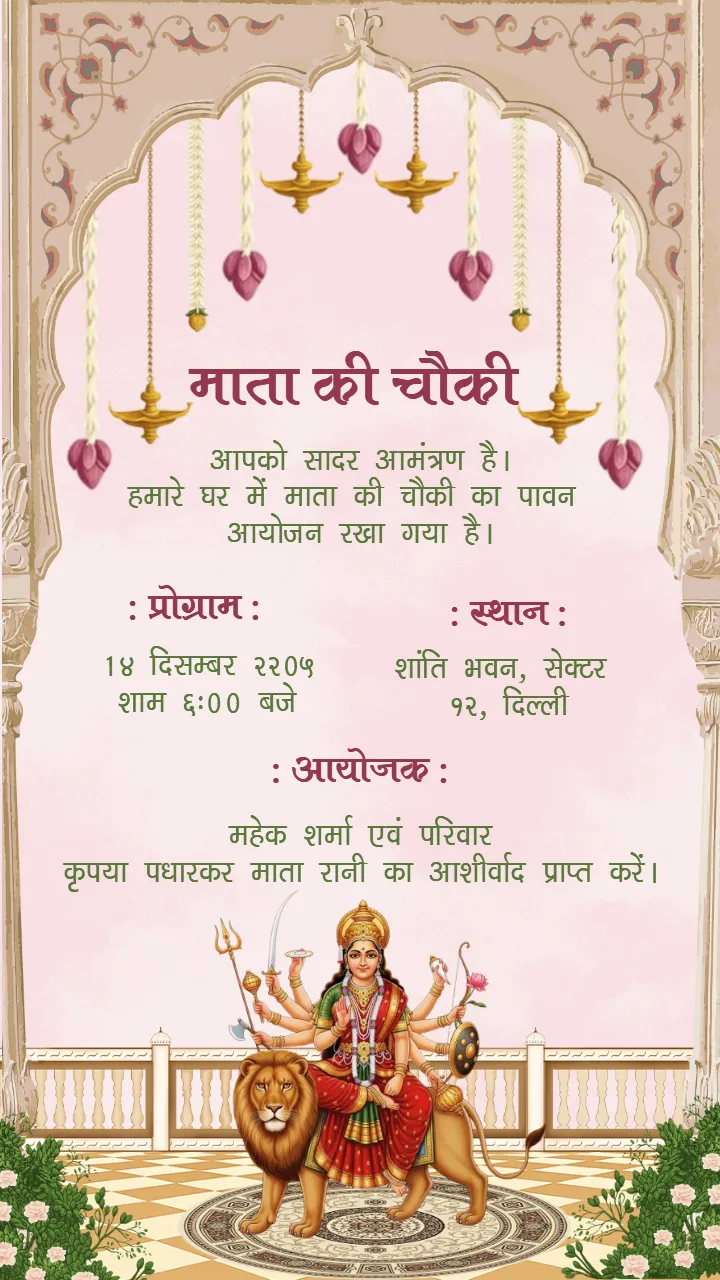 माता की चौकी
आपको सादर आमंत्रण है।
हमारे घर में माता की चौकी का पावन
आयोजन रखा गया है।
: प्रोग्राम :
१४ दिसम्बर २२०५
शाम ६:०० बजे
: स्थान :
शांति भवन, सेक्टर
१२, दिल्ली
: आयोजक :
महेक शर्मा एवं परिवार
कृपया पधारकर माता रानी का आशीर्वाद प्राप्त करें।